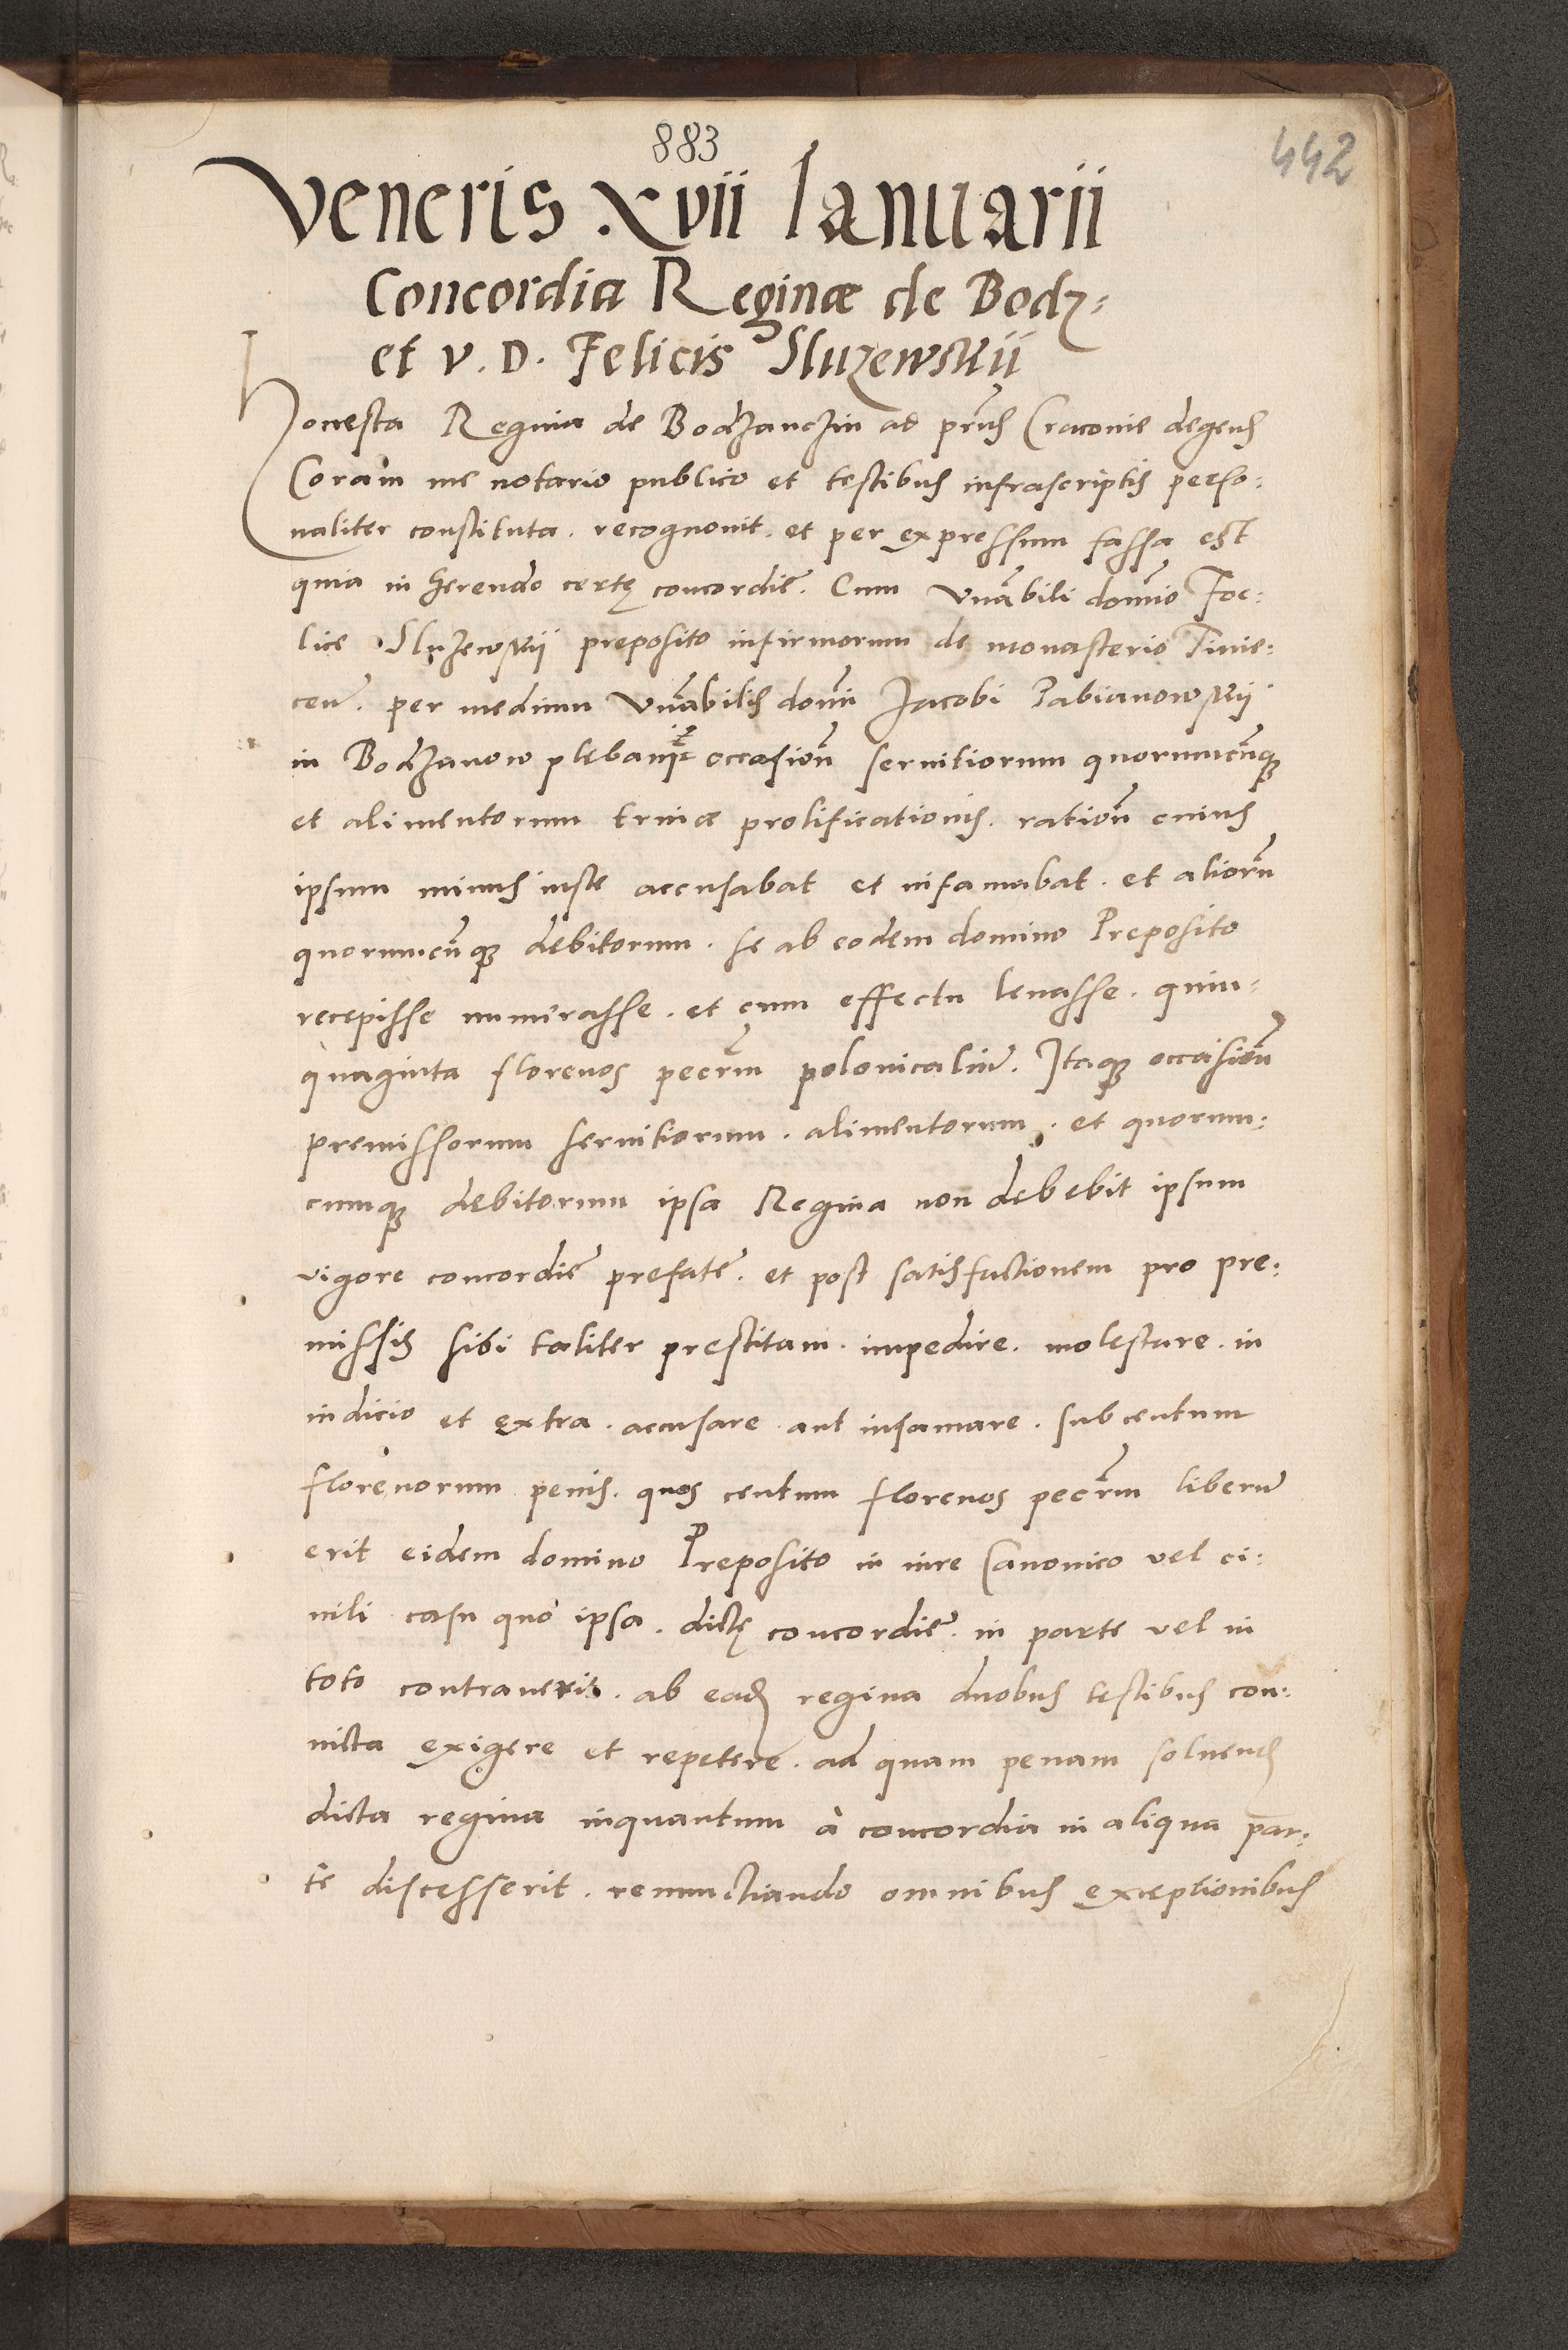 883
442
Veneris xvii Ianuarii
Concordia Reginæ de Bodz-
et V. D. Felicis Sluzewskii
Honesta Regina de Bodzanczin ad prns̃ Craconie degens
Coram me notario publico et testibus infrascriptis perso:
naliter constituta. recognouit. et per expressum fassa est
quia in herendo certę concordie. Cum Vnãbili domio Foe:
lice Sluzewskij preposito infirmorum de monasterio Tinie:
ceñ. per medium Vnãbilis domi Jacobi Pabianowskij
in Bodzanow plebani occasioñ seruitiorum quorumcunqȝ
et alimentorum trinæ prolificationis. ratioñ cuius
ipsum minus iuste accusabat et infamabat. et aliorũ
quorumcunqȝ debitorum. se ab eodem domino Preposito
recepisse numerasse. et cum effectu leuasse. quin-
quaginta florenos peccrm̃ polonicaliũ. Itaqȝ occasioñ
premissorum seruitiorum. alimentorum. et quorum:
cumqȝ debitorum ipsa Regina non debebit ipsum
vigore concordie prefate. et post satisfactionem pro pre:
missis sibi taliter prestitam. impedire. molestare. in
iudicio et extra. accusare aut infamare. sub centum
florenorum penis. quos centum florenos peccrm̃ liberũ
erit eidem domino Preposito in iure Canonico vel ci:
uili casu quo ipsa. dictę concordie. in parte vel in
toto contrauerit. ab eadȝ regina duobus testibus con:
uicta exigere et repetere. ad quam penam soluend
dicta regina inquantum à concordia in aliqua par:
te discesserit. renunctiando omnibus exceptionibus